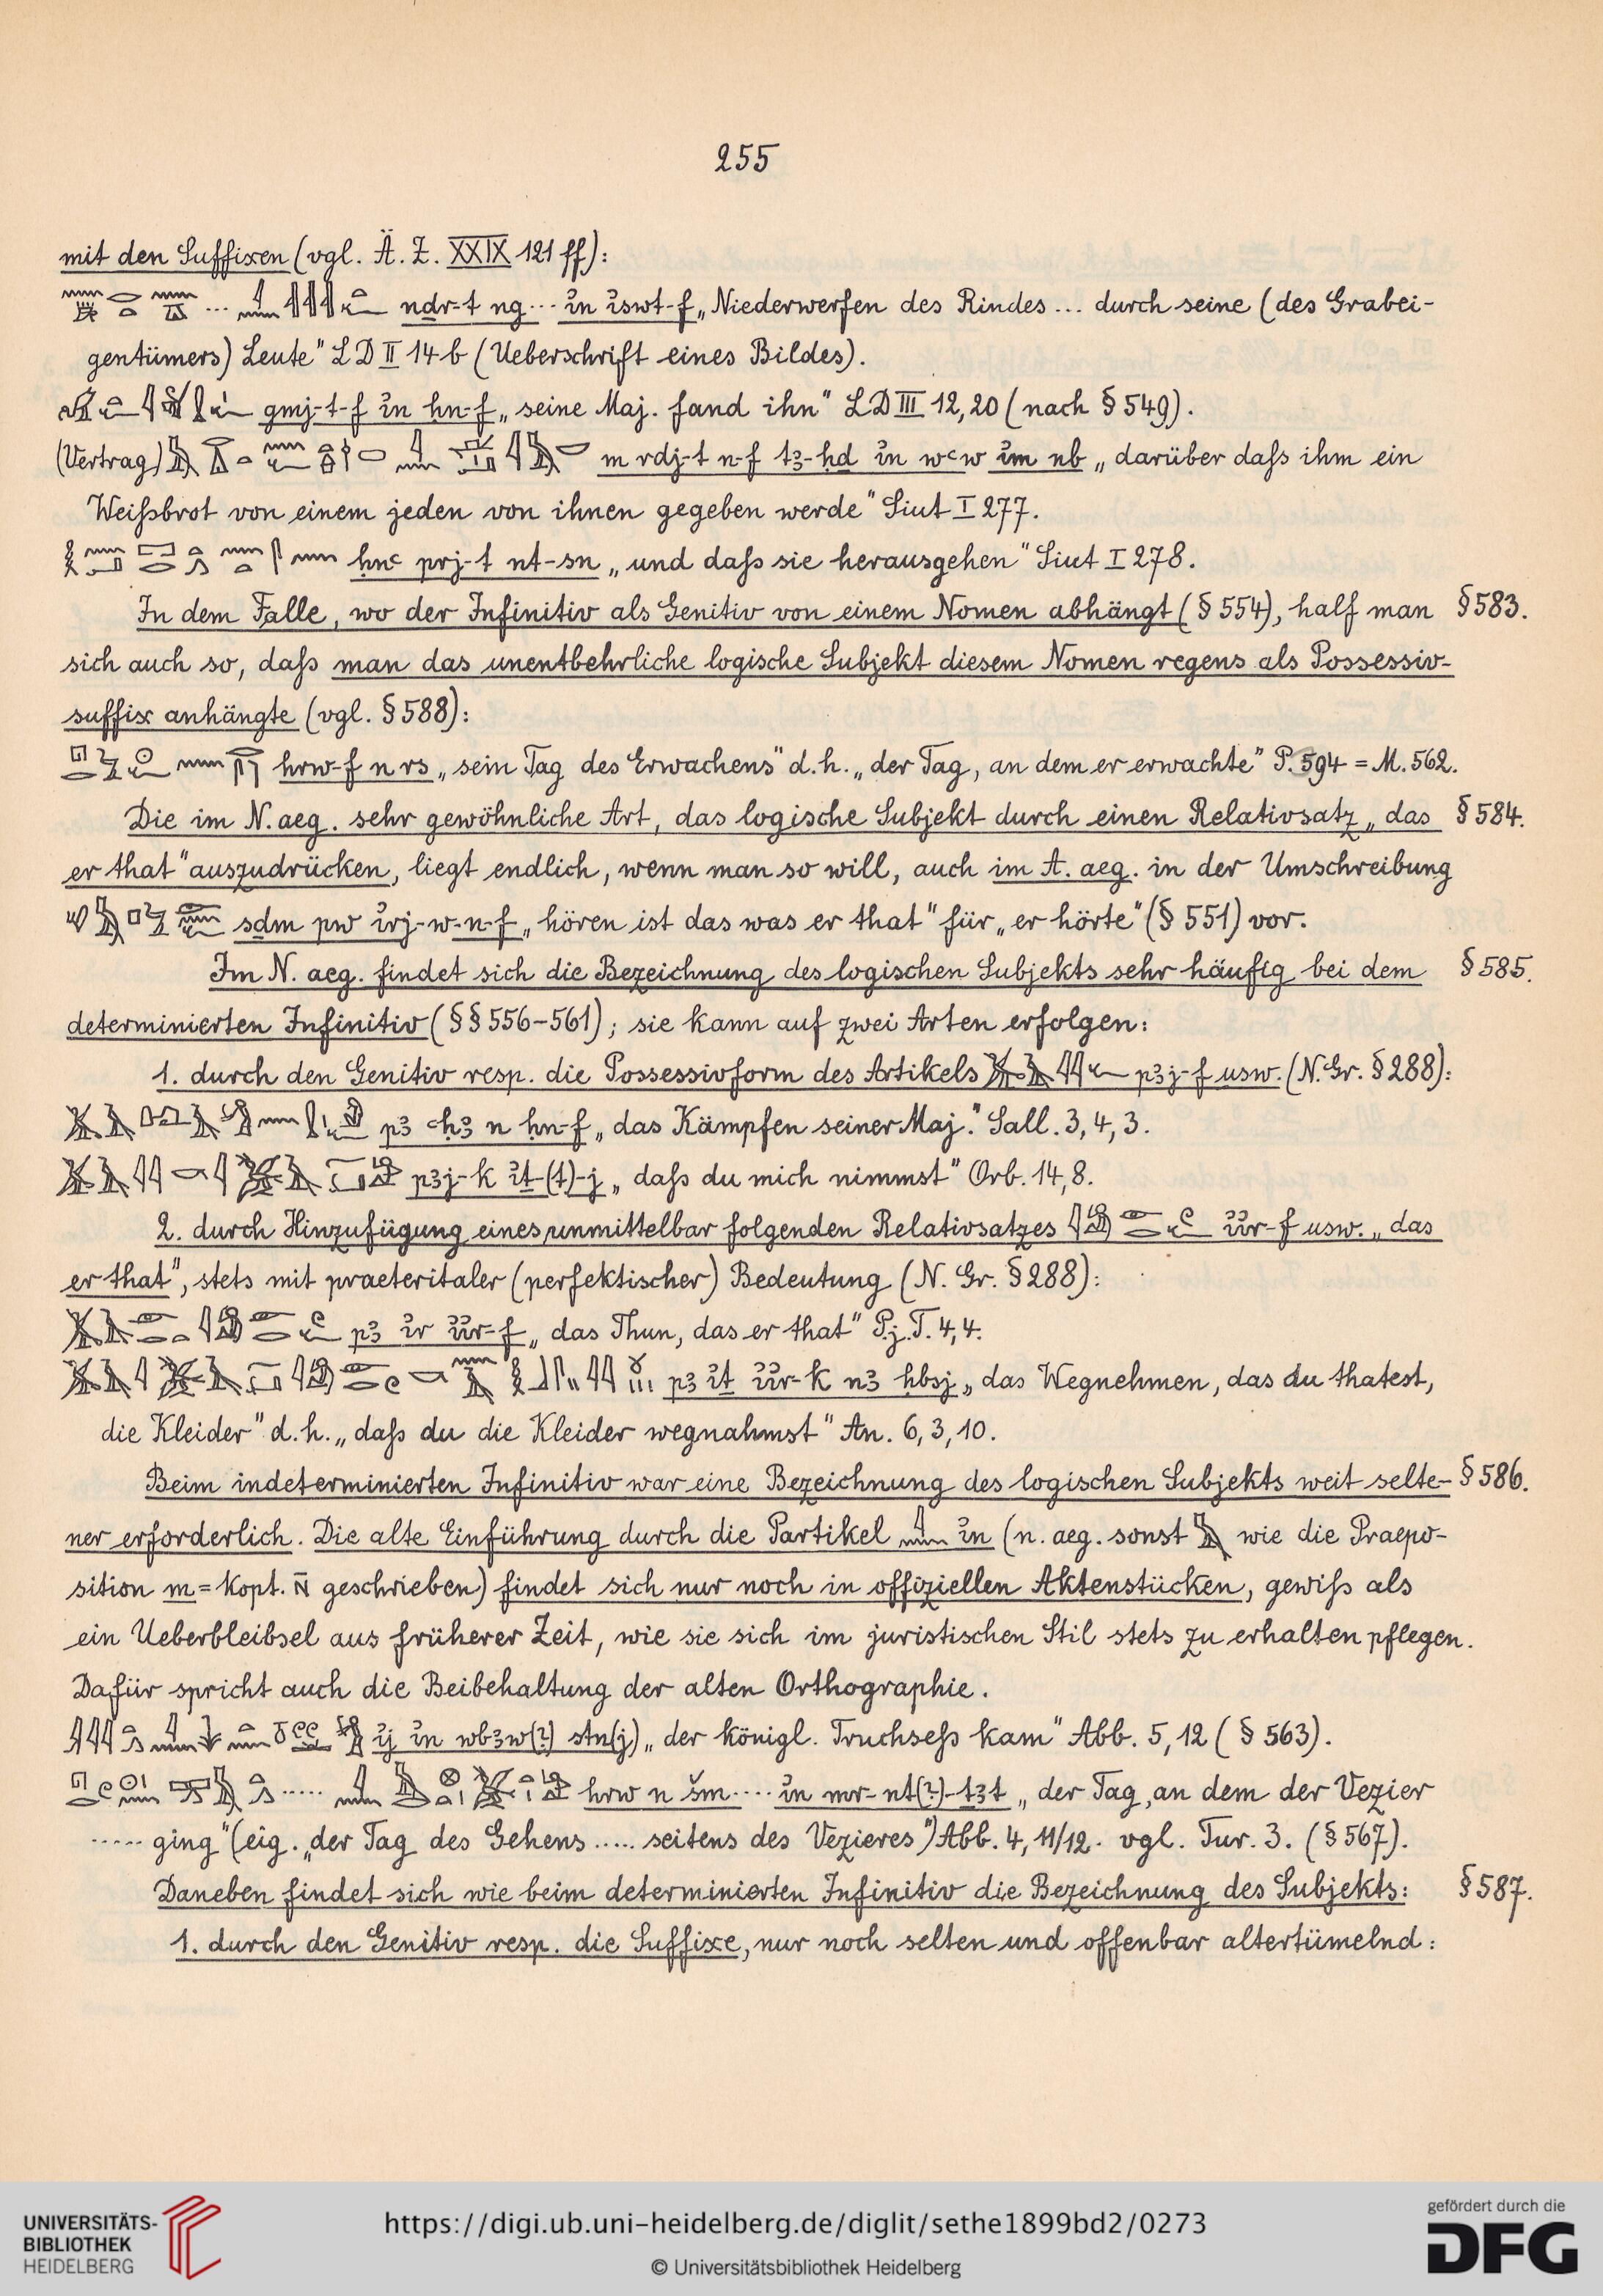 255
mit den Suffixen (vgl. Ä. Z. XXIX 121 ff):
... nḏr-t ng ... ỉn ỉswt-f „Niederwerfen des Rindes ... durch seine (des Grabei-
gentümers) Leute" LD II 14 b (Ueberschrift eines Bildes).
gmj-t-f ỉn ḥn-f „seine Maj. fand ihn" LD III 12,20 (nach § 549).
(Vertrag) m rdj-t n-f tꜣ-ḥḏ ỉn wꜥw ỉm nb „darüber daſs ihm ein
Weiſsbrot von einem jeden von ihnen gegeben werde" Siut I 277.
ḥnꜥ prj-t nt-sn „und daſs sie herausgehen" Siut I 278.
In dem Falle, wo der Infinitiv als Genitiv von einem Nomen abhängt (§ 554), half man § 583.
sich auch so, daſs man das unentbehrliche logische Subjekt diesem Nomen regens als Possessiv-
suffix anhängte (vgl. § 588):
hrw-f n rs „sein Tag des Erwachens" d.h. „der Tag, an dem er erwachte" P. 594 = M. 562.
Die im N. aeg. sehr gewöhnliche Art, das logische Subjekt durch einen Relativsatz „das § 584.
er that" auszudrücken, liegt endlich, wenn man so will, auch im A. aeg. in der Umschreibung
sḏm pw ỉrj-w-n-f „hören ist das was er that" für „er hörte" (§ 551) vor.
Im N. aeg. findet sich die Bezeichnung des logischen Subjekts sehr häufig bei dem § 585.
determinierten Infinitiv (§§ 556-561); sie kann auf zwei Arten erfolgen:
1. durch den Genitiv resp. die Possessivform des Artikels pꜣj-f usw. (N. Gr. § 288):
pꜣ ꜥḥꜣ n ḥn-f „das Kämpfen seiner Maj." Sall. 3, 4, 3.
pꜣj-k ỉṯ-(t)-j „daſs du mich nimmst" Orb. 14, 8.
2. durch Hinzufügung eines unmittelbar folgenden Relativsatzes ỉỉr-f usw. „das
er that", stets mit praeteritaler (perfektischer) Bedeutung (N. Gr. § 288):
pꜣ ỉr ỉỉr-f „das Thun, das er that" P.j.T. 4, 4.
pꜣ ỉṯ ỉỉr-k nꜣ ḥbsj „das Wegnehmen, das du thatest,
die Kleider" d.h. „daſs du die Kleider wegnahmst" An. 6, 3, 10.
Beim indeterminierten Infinitiv war eine Bezeichnung des logischen Subjekts weit selte- § 586.
ner erforderlich. Die alte Einführung durch die Partikel ỉn (n. aeg. sonst wie die Praepo-
sition m = kopt. N̄ geschrieben) findet sich nur noch in offiziellen Aktenstücken, gewiſs als
ein Ueberbleibsel aus früherer Zeit, wie sie sich im juristischen Stil stets zu erhalten pflegen.
Dafür spricht auch die Beibehaltung der alten Orthographie.
ỉj ỉn wbꜣw(?) stn(j) „der königl. Truchseſs kam" Abb. 5, 12 (§ 563).
..... hrw n šm .... ỉn mr-nt(?)-tꜣt „der Tag, an dem der Vezier
..... ging" (eig. „der Tag des Gehens ..... seitens des Vezieres") Abb. 4, 11/12. vgl. Tur. 3. (§ 567).
Daneben findet sich wie beim determinierten Infinitiv die Bezeichnung des Subjekts: § 587.
1. durch den Genitiv resp. die Suffixe, nur noch selten und offenbar altertümelnd:
UNIVERSITÄTS-
BIBLIOTHEK
HEIDELBERG
https://digi.ub.uni-heidelberg.de/diglit/sethe1899bd2/0273
© Universitätsbibliothek Heidelberg
gefördert durch die
DFG